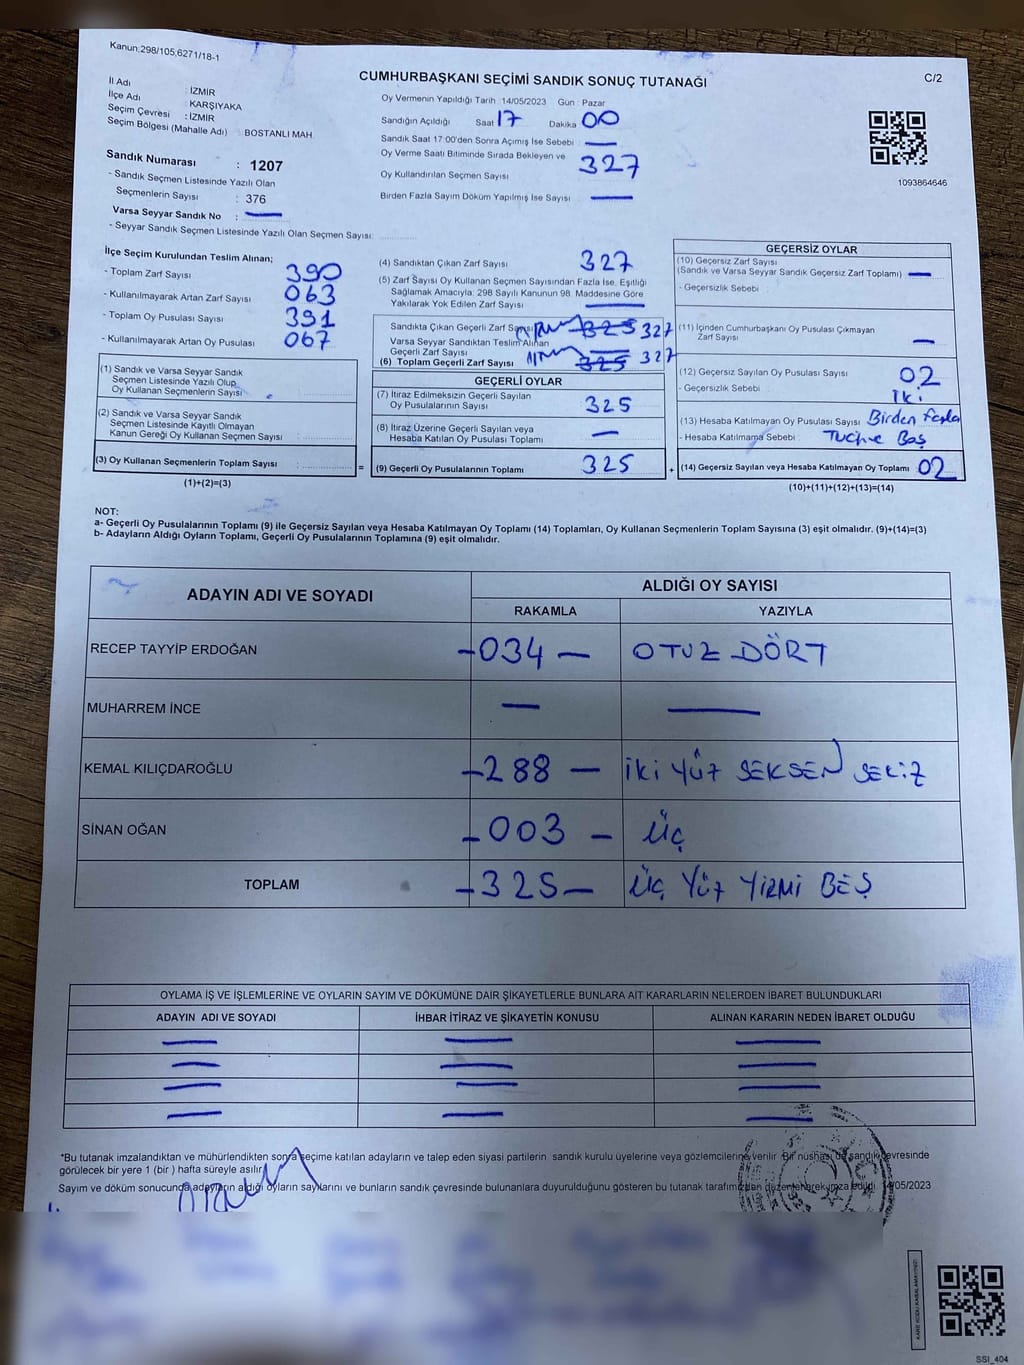 Kanun:298/105,6271/18-1
C/2
CUMHURBAŞKANI SEÇİMİ SANDIK SONUÇ TUTANAĞI
İl Adı : İZMİR
İlçe Adı : KARŞIYAKA
Seçim Çevresi : İZMİR
Seçim Bölgesi (Mahalle Adı) : BOSTANLI MAH.
Sandık Numarası : 1207
- Sandık Seçmen Listesinde Yazılı Olan
Seçmenlerin Sayısı : 376
Varsa Seyyar Sandık No : —
- Seyyar Sandık Seçmen Listesinde Yazılı Olan Seçmen Sayısı:
Oy Vermenin Yapıldığı Tarih : 14/05/2023 Gün : Pazar
Sandığın Açıldığı Saat 17 Dakika 00
Sandık Saat 17:00'den Sonra Açımış İse Sebebi : —
Oy Verme Saati Bitiminde Sırada Bekleyen ve
Oy Kullandırılan Seçmen Sayısı 327
Birden Fazla Sayım Döküm Yapılmış İse Sayısı —
1093864646
İlçe Seçim Kurulundan Teslim Alınan;
- Toplam Zarf Sayısı 390
- Kullanılmayarak Artan Zarf Sayısı 063
- Toplam Oy Pusulası Sayısı 391
- Kullanılmayarak Artan Oy Pusulası 067
(1) Sandık ve Varsa Seyyar Sandık
Seçmen Listesinde Yazılı Olup
Oy Kullanan Seçmenlerin Sayısı
(2) Sandık ve Varsa Seyyar Sandık
Seçmen Listesinde Kayıtlı Olmayan
Kanun Gereği Oy Kullanan Seçmen Sayısı
(3) Oy Kullanan Seçmenlerin Toplam Sayısı =
(1)+(2)=(3)
(4) Sandıktan Çıkan Zarf Sayısı 327
(5) Zarf Sayısı Oy Kullanan Seçmen Sayısından Fazla İse, Eşitliği
Sağlamak Amacıyla; 298 Sayılı Kanunun 98. Maddesine Göre
Yakılarak Yok Edilen Zarf Sayısı —
Sandıkta Çıkan Geçerli Zarf Sayısı 325 327
Varsa Seyyar Sandıktan Teslim Alınan
Geçerli Zarf Sayısı —
(6) Toplam Geçerli Zarf Sayısı 325 327
GEÇERLİ OYLAR
(7) İtiraz Edilmeksizin Geçerli Sayılan
Oy Pusulalarının Sayısı 325
(8) İtiraz Üzerine Geçerli Sayılan veya
Hesaba Katılan Oy Pusulası Toplamı —
(9) Geçerli Oy Pusulalarının Toplamı 325 +
GEÇERSİZ OYLAR
(10) Geçersiz Zarf Sayısı
(Sandık ve Varsa Seyyar Sandık Geçersiz Zarf Toplamı) —
- Geçersizlik Sebebi :
(11) İçinden Cumhurbaşkanı Oy Pusulası Çıkmayan
Zarf Sayısı —
(12) Geçersiz Sayılan Oy Pusulası Sayısı 02
- Geçersizlik Sebebi : İki
(13) Hesaba Katılmayan Oy Pusulası Sayısı Birden Fazla
- Hesaba Katılmama Sebebi Boş
(14) Geçersiz Sayılan veya Hesaba Katılmayan Oy Toplamı 02
(10)+(11)+(12)+(13)=(14)
NOT:
a- Geçerli Oy Pusulalarının Toplamı (9) ile Geçersiz Sayılan veya Hesaba Katılmayan Oy Toplamı (14) Toplamları, Oy Kullanan Seçmenlerin Toplam Sayısına (3) eşit olmalıdır. (9)+(14)=(3)
b- Adayların Aldığı Oyların Toplamı, Geçerli Oy Pusulalarının Toplamına (9) eşit olmalıdır.
ADAYIN ADI VE SOYADI ALDIĞI OY SAYISI
RAKAMLA YAZIYLA
RECEP TAYYİP ERDOĞAN -034- OTUZ DÖRT
MUHARREM İNCE — —
KEMAL KILIÇDAROĞLU -288- İKİ YÜZ SEKSEN SEKİZ
SİNAN OĞAN -003- ÜÇ
TOPLAM -325- ÜÇ YÜZ YİRMİ BEŞ
OYLAMA İŞ VE İŞLEMLERİNE VE OYLARIN SAYIM VE DÖKÜMÜNE DAİR ŞİKAYETLERLE BUNLARA AİT KARARLARIN NELERDEN İBARET BULUNDUKLARI
ADAYIN ADI VE SOYADI İHBAR İTİRAZ VE ŞİKAYETİN KONUSU ALINAN KARARIN NEDEN İBARET OLDUĞU
*Bu tutanak imzalandıktan ve mühürlendikten sonra seçime katılan adayların ve talep eden siyasi partilerin sandık kurulu üyelerine veya gözlemcilerine verilir. Bir nüshası da sandık çevresinde
görülecek bir yere 1 (bir ) hafta süreyle asılır.
Sayım ve döküm sonucunda adayların aldığı oyların sayılarını ve bunların sandık çevresinde bulunanlara duyurulduğunu gösteren bu tutanak tarafımızdan düzenlenerek imza edildi. 14/05/2023
SSI_404